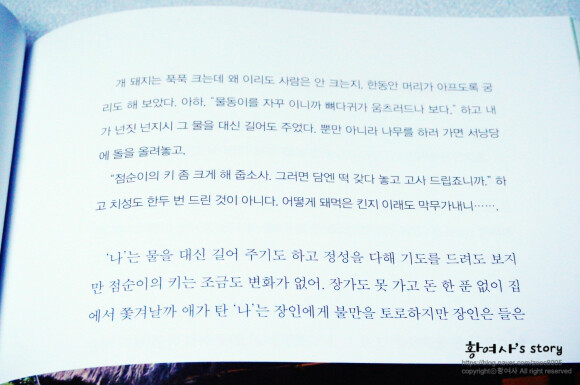 개 돼지는 푹푹 크는데 왜 이리도 사람은 안 크는지. 한동안 머리가 아프도록 궁
리도 해 보았다. 아하. "물동이를 자꾸 이니까 뼈다귀가 움츠러드나 보다." 하고 내
가 넌짓 넌지시 그 물을 대신 길어도 주었다. 뿐만 아니라 나무를 하러 가면 서낭당
에 돌을 올려놓고.
"점순이의 키 좀 크게 해 줍소사. 그러면 담엔 떡 갖다 놓고 고사 드립죠니까." 하
고 치성도 한두 번 드린 것이 아니다. 어떻게 돼먹은 킨지 이래도 막무가내니…….
'나'는 물을 대신 길어 주기도 하고 정성을 다해 기도를 드려도 보지
만 점순이의 키는 조금도 변화가 없어. 장가도 못 가고 돈 한 푼 없이 집
에서 쫓겨날까 애가 탄 '나'는 장인에게 불만을 토로하지만 장인은 들은
황여사's story
copyrightⓒ황여사 All right reserved